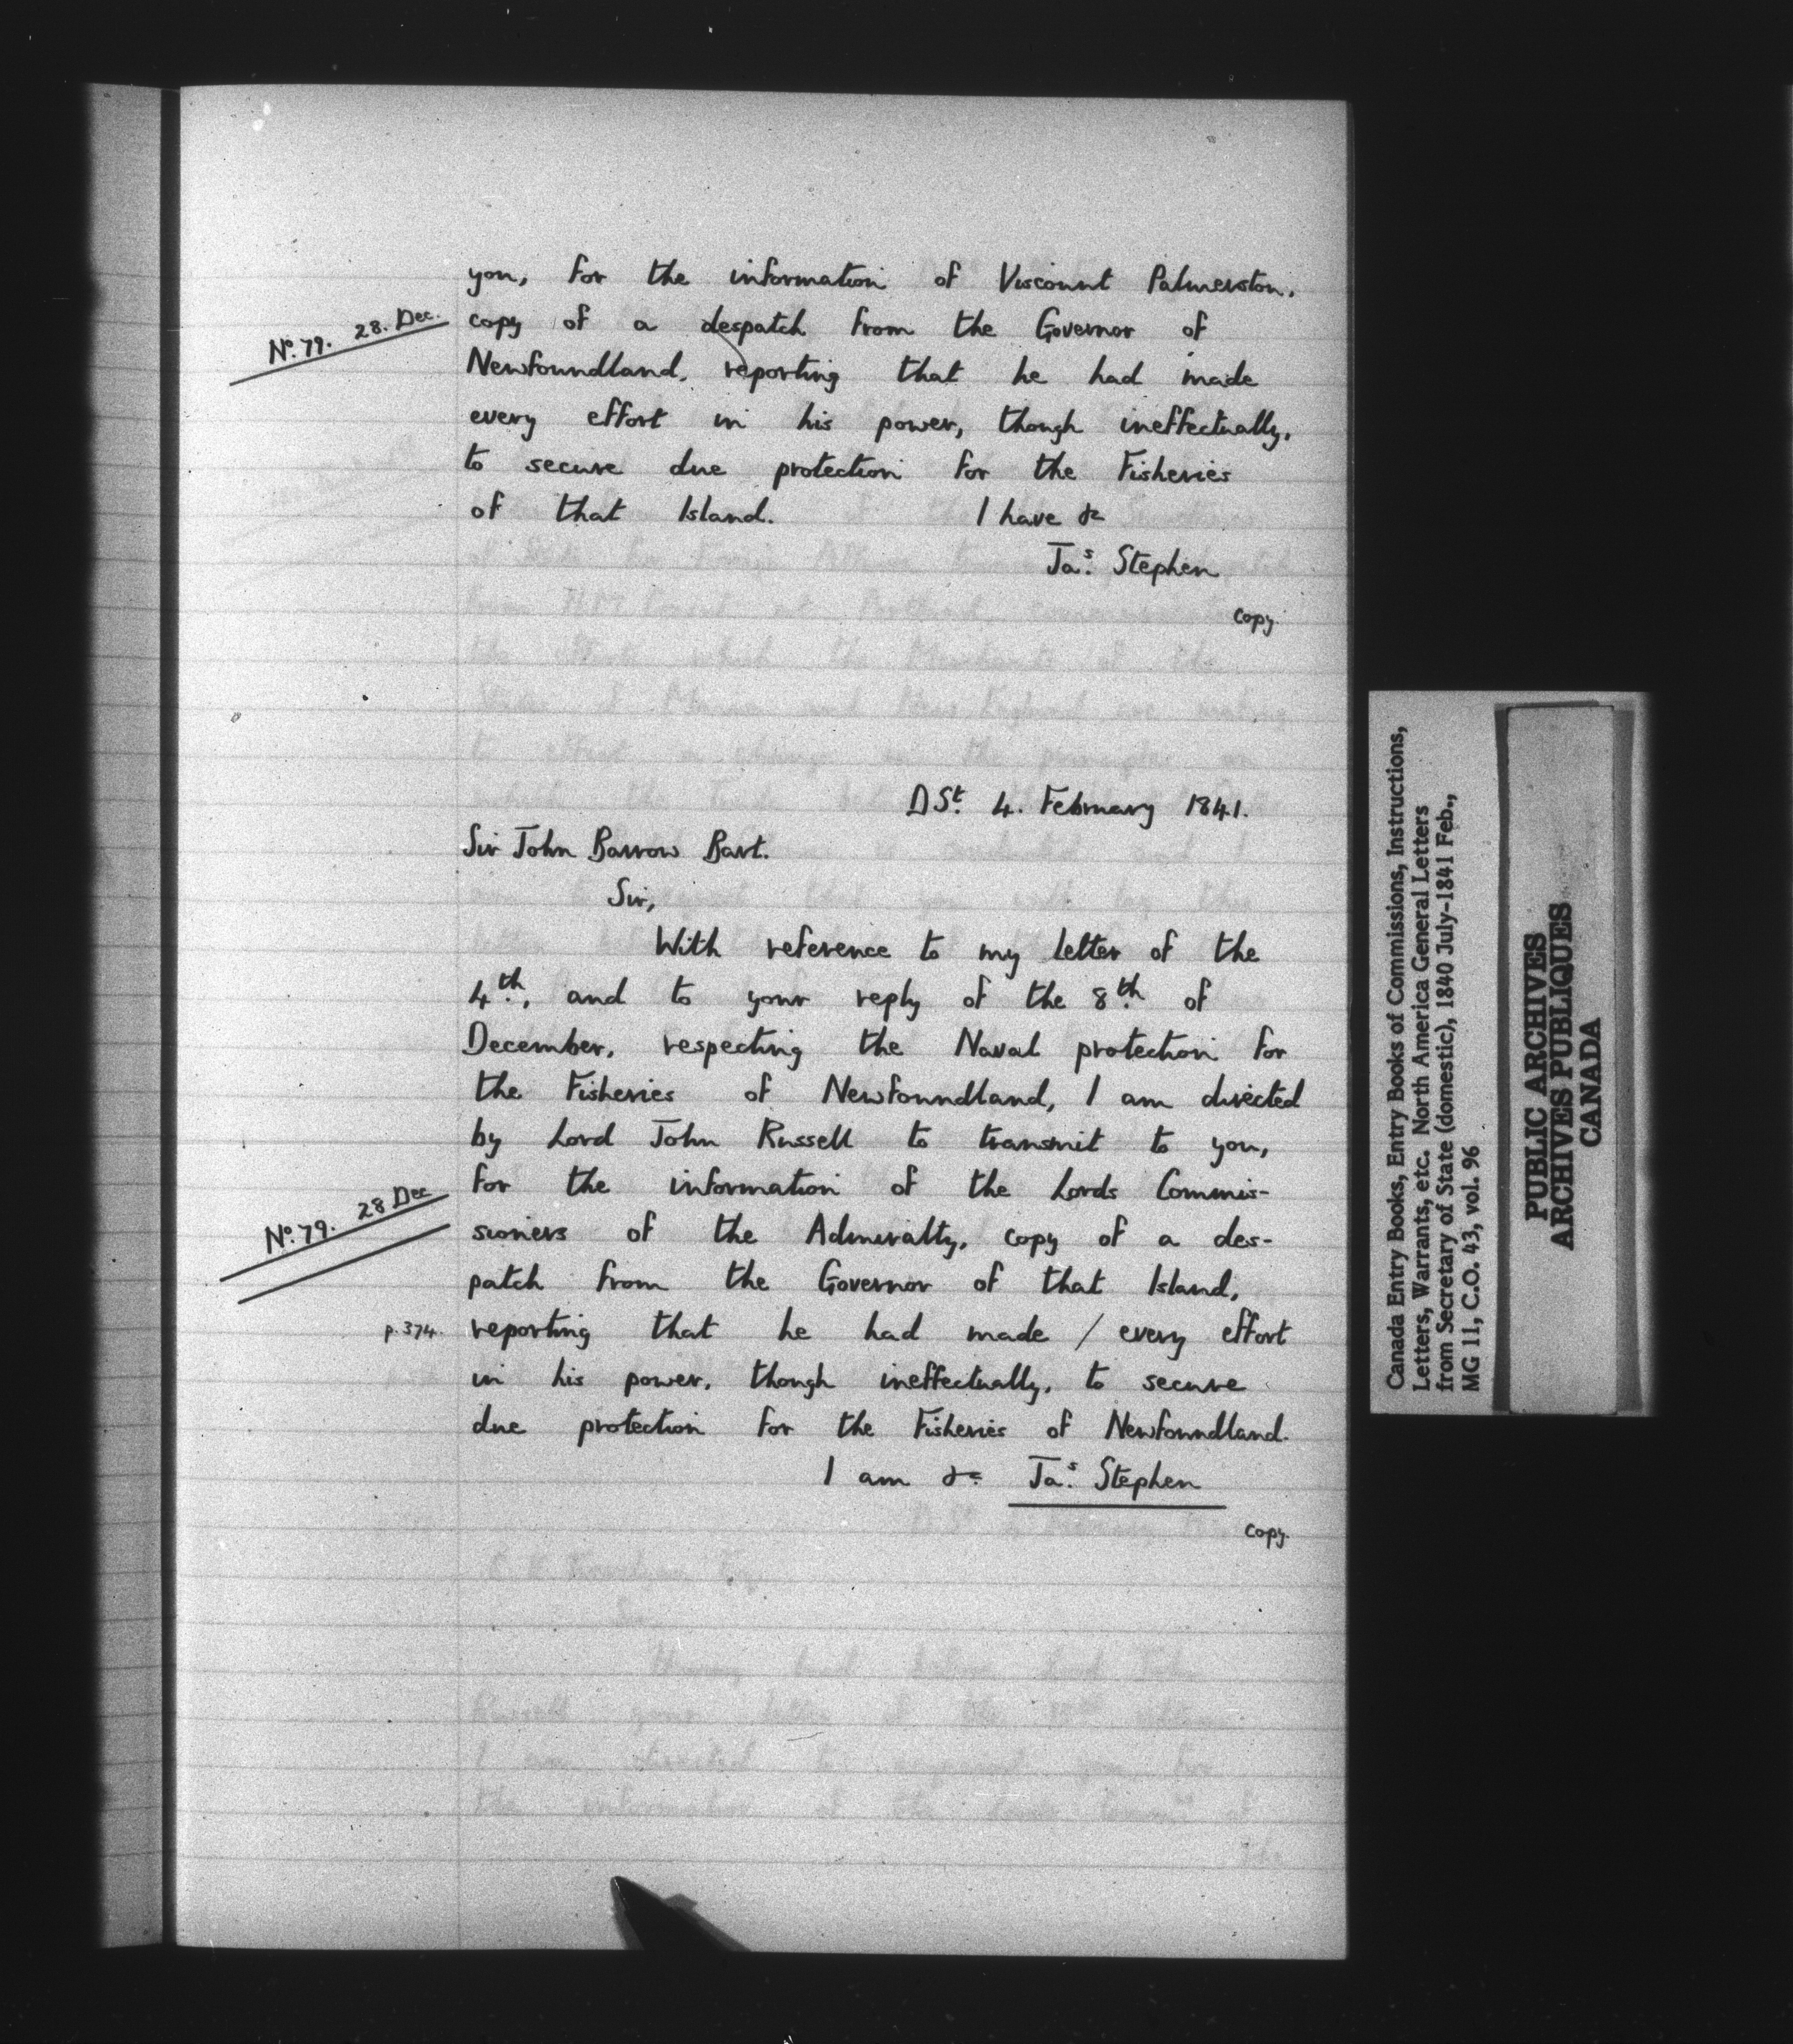 you, for the information of Viscount Palmerston,
No. 79. 28. Dec.
copy of a despatch from the Governor of
Newfoundland, reporting that he had made
every effort in his power, though ineffectually,
to secure due protection for the Fisheries
of that Island. I have &c
Jas. Stephen
Copy.
D St. 4. February 1841.
Sir John Barrow Bart.
Sir,
With reference to my letter of the
4th., and to your reply of the 8th. of
December, respecting the Naval protection for
the Fisheries of Newfoundland, I am directed
by Lord John Russell to transmit to you,
for the information of the Lords Commis-
No. 79. 28 Dec
sioners of the Admiralty, copy of a des-
patch from the Governor of that Island,
p. 374. reporting that he had made / every effort
in his power, though ineffectually, to secure
due protection for the Fisheries of Newfoundland.
I am &c. Jas. Stephen
Copy.
Canada Entry Books, Entry Books of Commissions, Instructions,
Letters, Warrants, etc. North America General Letters
from Secretary of State (domestic), 1840 July-1841 Feb.,
MG 11, C.O. 43, vol. 96
PUBLIC ARCHIVES
ARCHIVES PUBLIQUES
CANADA